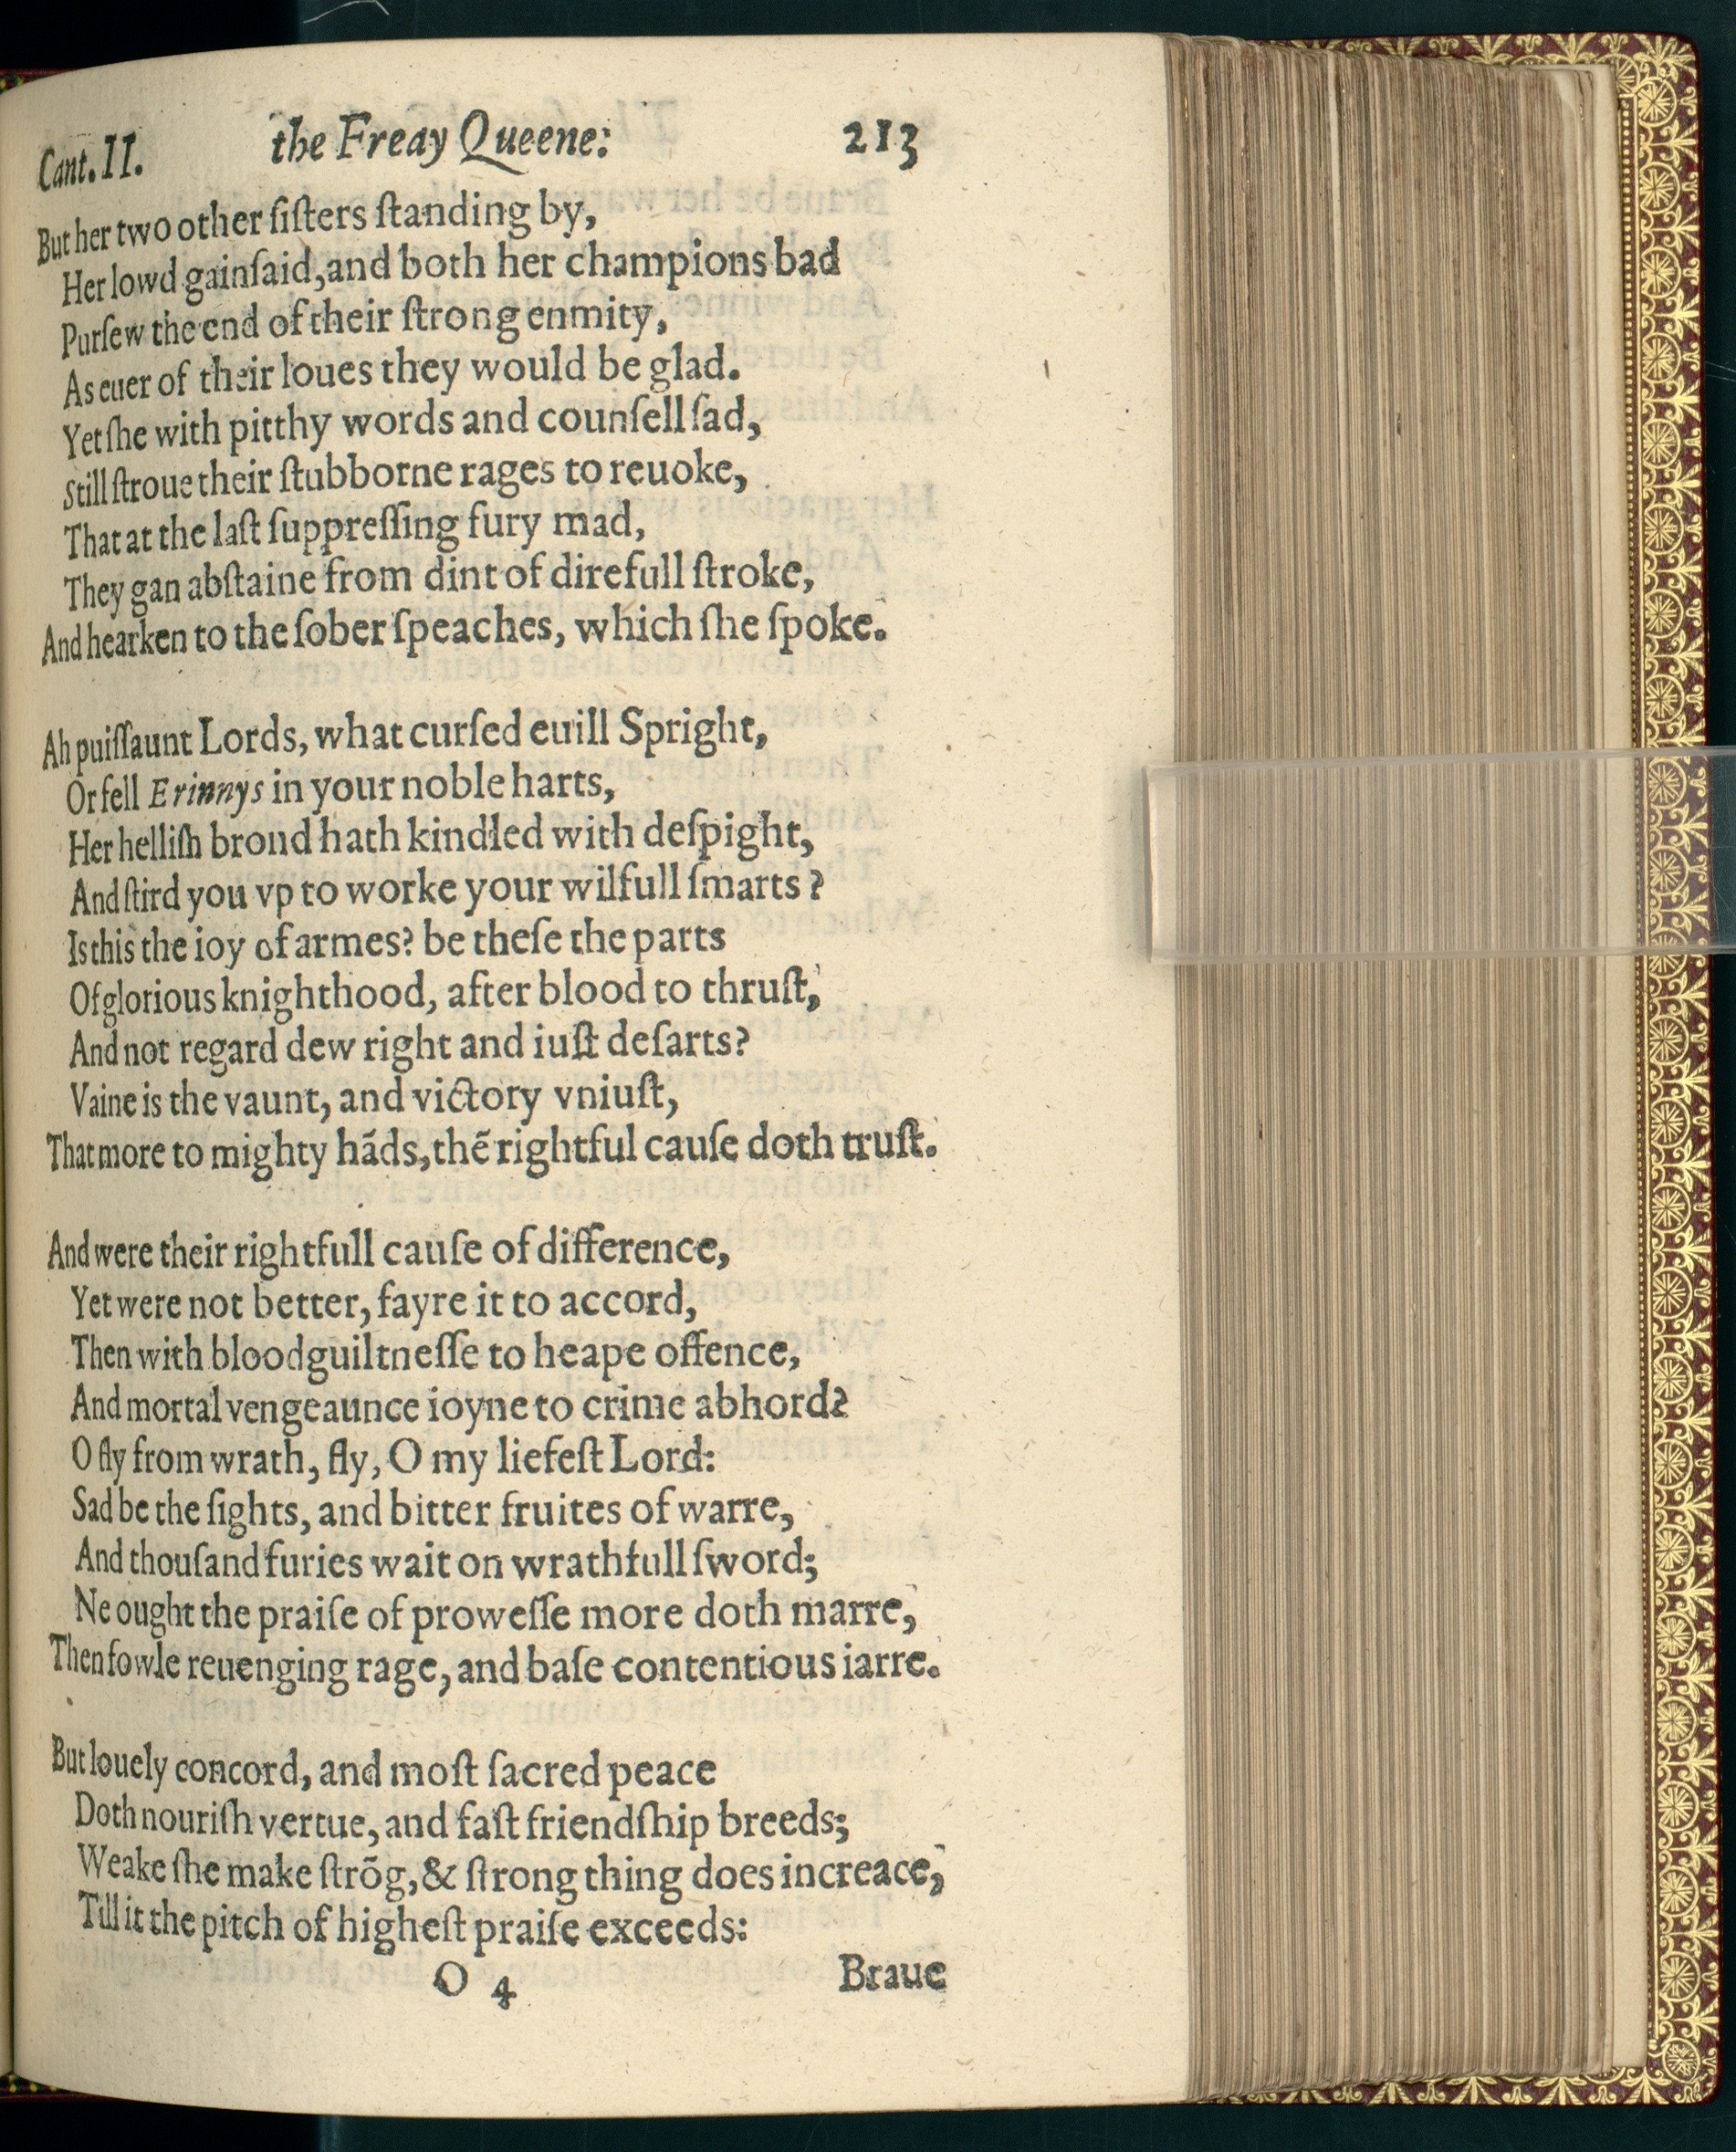 Cant. II. the Freay Queene: 213
But her two other ſiſters ſtanding by,
Her lowd gainſaid, and both her champions bad
Purſew the end of their ſtrong enmity,
As euer of their loues they would be glad.
Yet ſhe with pitthy words and counſell ſad,
Still ſtroue their ſtubborne rages to reuoke,
That at the laſt ſuppreſſing fury mad,
They gan abſtaine from dint of direfull ſtroke,
And hearken to the ſober ſpeaches, which ſhe ſpoke.
Ah puiſſaunt Lords, what curſed euill Spright,
Or fell Erinnys in your noble harts,
Her helliſh brond hath kindled with deſpight,
And ſtird you vp to worke your wilfull ſmarts?
Is this the ioy of armes? be theſe the parts
Of glorious knighthood, after blood to thruſt,
And not regard dew right and iuſt deſarts?
Vaine is the vaunt, and victory vniuſt,
That more to mighty hãds, thẽ rightful cauſe doth truſt.
And were their rightfull cauſe of difference,
Yet were not better, fayre it to accord,
Then with bloodguiltneſſe to heape offence,
And mortal vengeaunce ioyne to crime abhord?
O fly from wrath, fly, O my liefeſt Lord:
Sad be the ſights, and bitter fruites of warre,
And thouſand furies wait on wrathfull ſword;
Ne ought the praiſe of proweſſe more doth marre,
Then fowle reuenging rage, and baſe contentious iarre.
But louely concord, and moſt ſacred peace
Doth nouriſh vertue, and faſt friendſhip breeds;
Weake ſhe make ſtrõg, & ſtrong thing does increace,
Till it the pitch of higheſt praiſe exceeds:
O 4 Braue